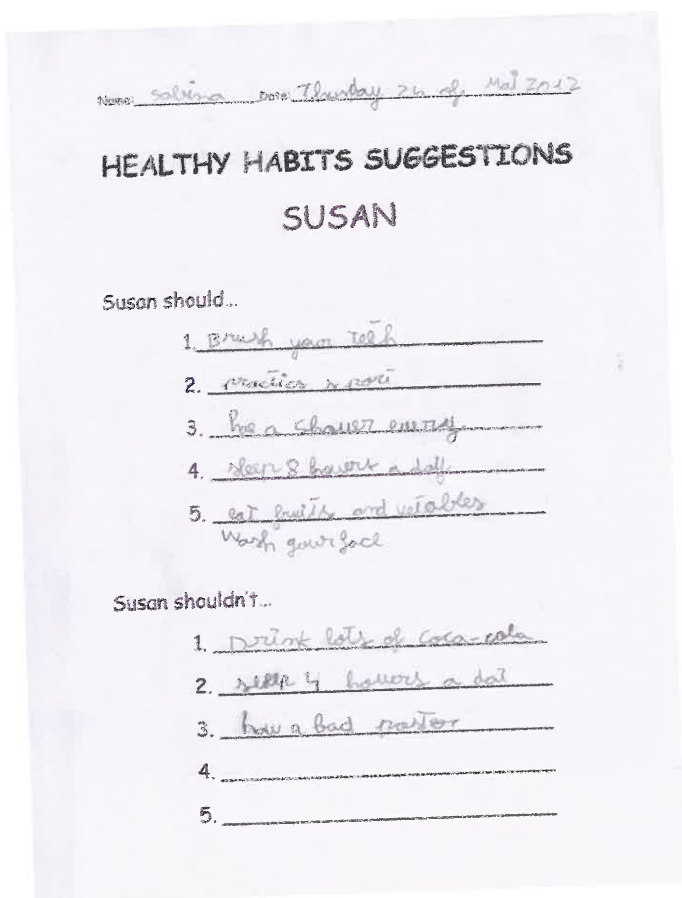 Name: Sabina Date: Thursday 24 of Mai 2012
HEALTHY HABITS SUGGESTIONS
SUSAN
Susan should...
1. Brush your Teeh
2. practics sport
3. a shauer
4. sleep 8 houers a day
5. eat fruits and vetables
Wash your face
Susan shouldn't...
1. Drink lots of coca-cola
2. sleep 4 houers a dat
3. a bad
4.
5.